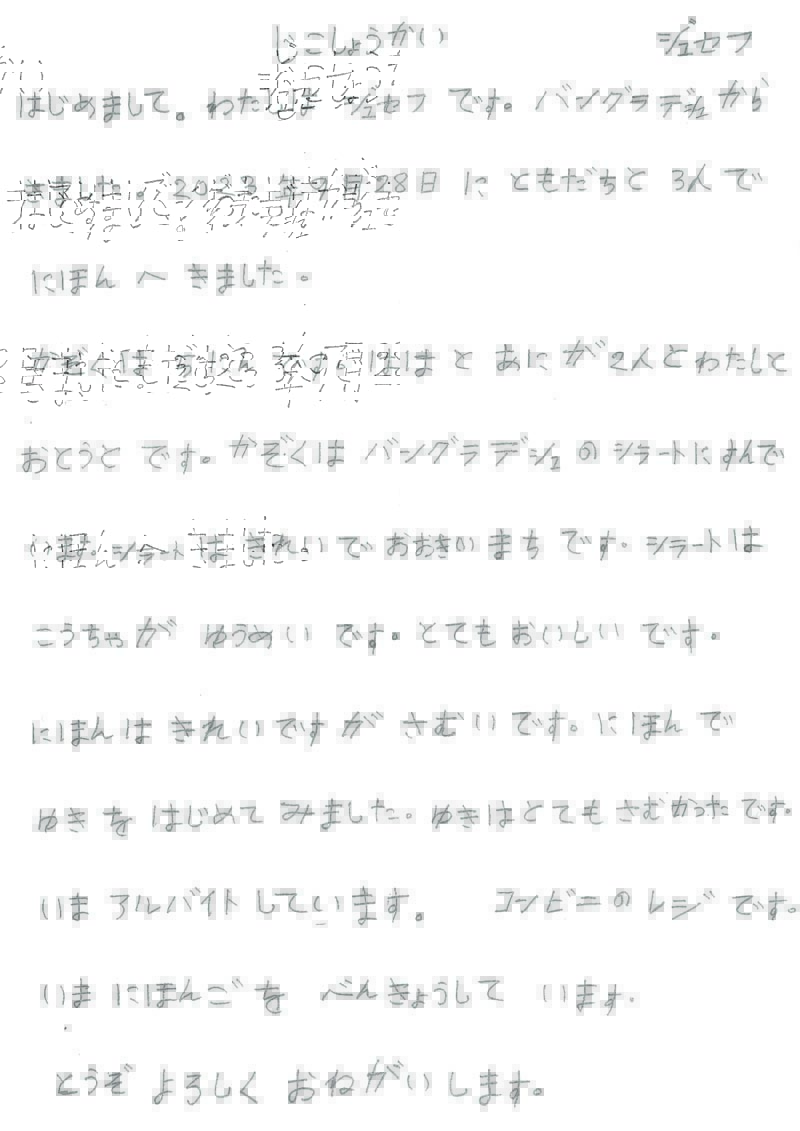 じこしょうかい ジュセフ
はじめまして。わたしは ジュセフ です。バングラデシュから
きました。2023年 月28日 に ともだちと 3人で
にほん へ きました。
かぞくは はは と あにが2人とわたしと
おとうと です。かぞくは バングラデシュ の シラートに すんで
います。シラートは きれいで おおきい まち です。シラートは
こうちゃが ゆうめい です。とても おいしい です。
にほんは きれいですが さむいです。にほんで
ゆきを はじめて みました。ゆきはとても さむかった です。
いま アルバイト しています。 コンビニの レジ です。
いま にほんごを べんきょうして います。
どうぞ よろしく おねがいします。